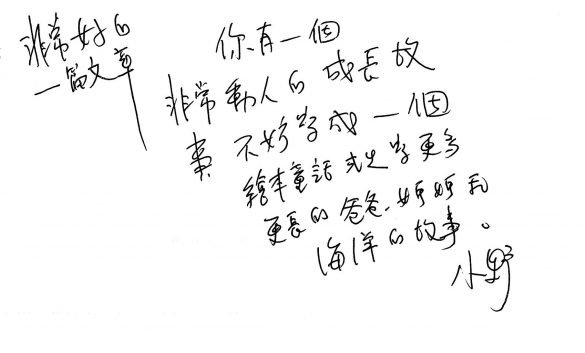 非常好的
一篇文章
你有一個
非常動人的成長故
事,不妨寫成一個
繪本童話或是寫更多
更長的爸爸、媽媽和
海洋的故事。
小野